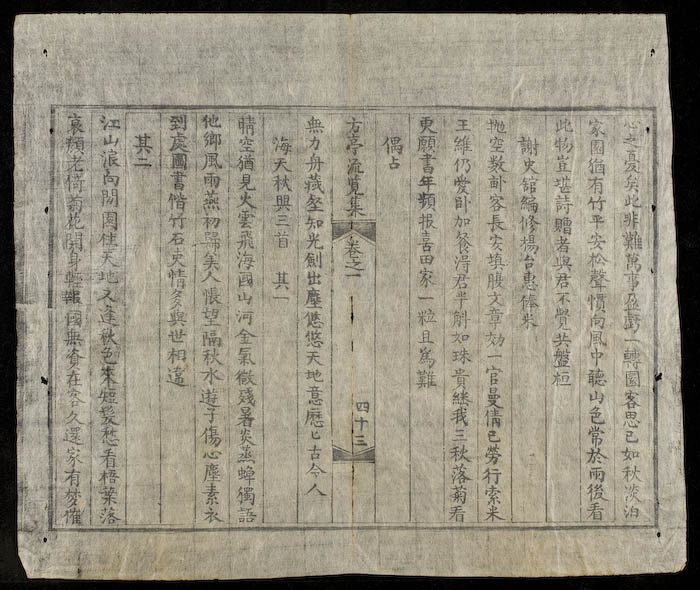 心之憂矣此非難萬事盈虧一轉圜客思已如秋淡泊
家園猶有竹平安松聲慣向風中聽山色常於雨後看
此物豈堪詩贈者與君不覺共盤桓
謝史舘編修楊台惠俸米
抛空數卦客長安填腹文章効一官曼倩已勞行索米
王維仍愛卦加餐淂君半斛如珠貴継我三秋落菊看
更願書年頻报喜田家一粒且爲難
偶占
方亭流覧集 卷之一 四十三
無力舟藏壑知光劍出塵悠悠天地意歷匕古今人
海天秋興三首 其一
晴空猶見火雲飛海國山河金氣微殘暑炎蒸蟬獨語
他鄉風雨燕初歸美人悵望隔秋水遊子傷心塵素衣
到處圖書偕竹石史情多與世相違
其二
江山浪向閙園柱天地又逢秋色來短髮愁看梧葉落
衰頽老倚菊花開身輕報國無資在客久還家有夢催